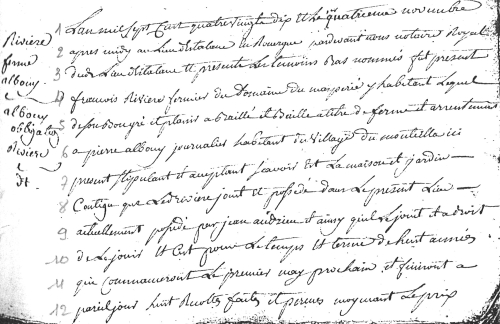 Rivière
ferme
albouy
albouy
obligation
Rivière
1 L'an mil sept Cent quatre vingts dix et le quatrieme novembre
2 apres midy au Lieu d'italane en Rouergue pardevant nous notaire Royal
3 dud. Lieu d'italane et presents Les temoins bas nommés fut present
4 francois Riviere fermier du Domaine du y habitant Lequel
5 de son Bon gré et plaisir a Baillé et Baille a titre de ferme et arrentement
6 a pierre albouy journalier habitant du village du ici
7 present stipulant et acceptant scavoir Est La maison et jardin
8 Contigu que Led. riviere jouit et possede dans Le present Lieu
9 actuellement possedé par jean audrieu et ainsy qu'il Le jouit et a droit
10 de Le jouir Et C'est pour Le temps Et terme de huit années
11 qui Commanceront Le premier may prochain et finiront a
12 pareil jour huit Recoltes faites et percues moyenant Le prix